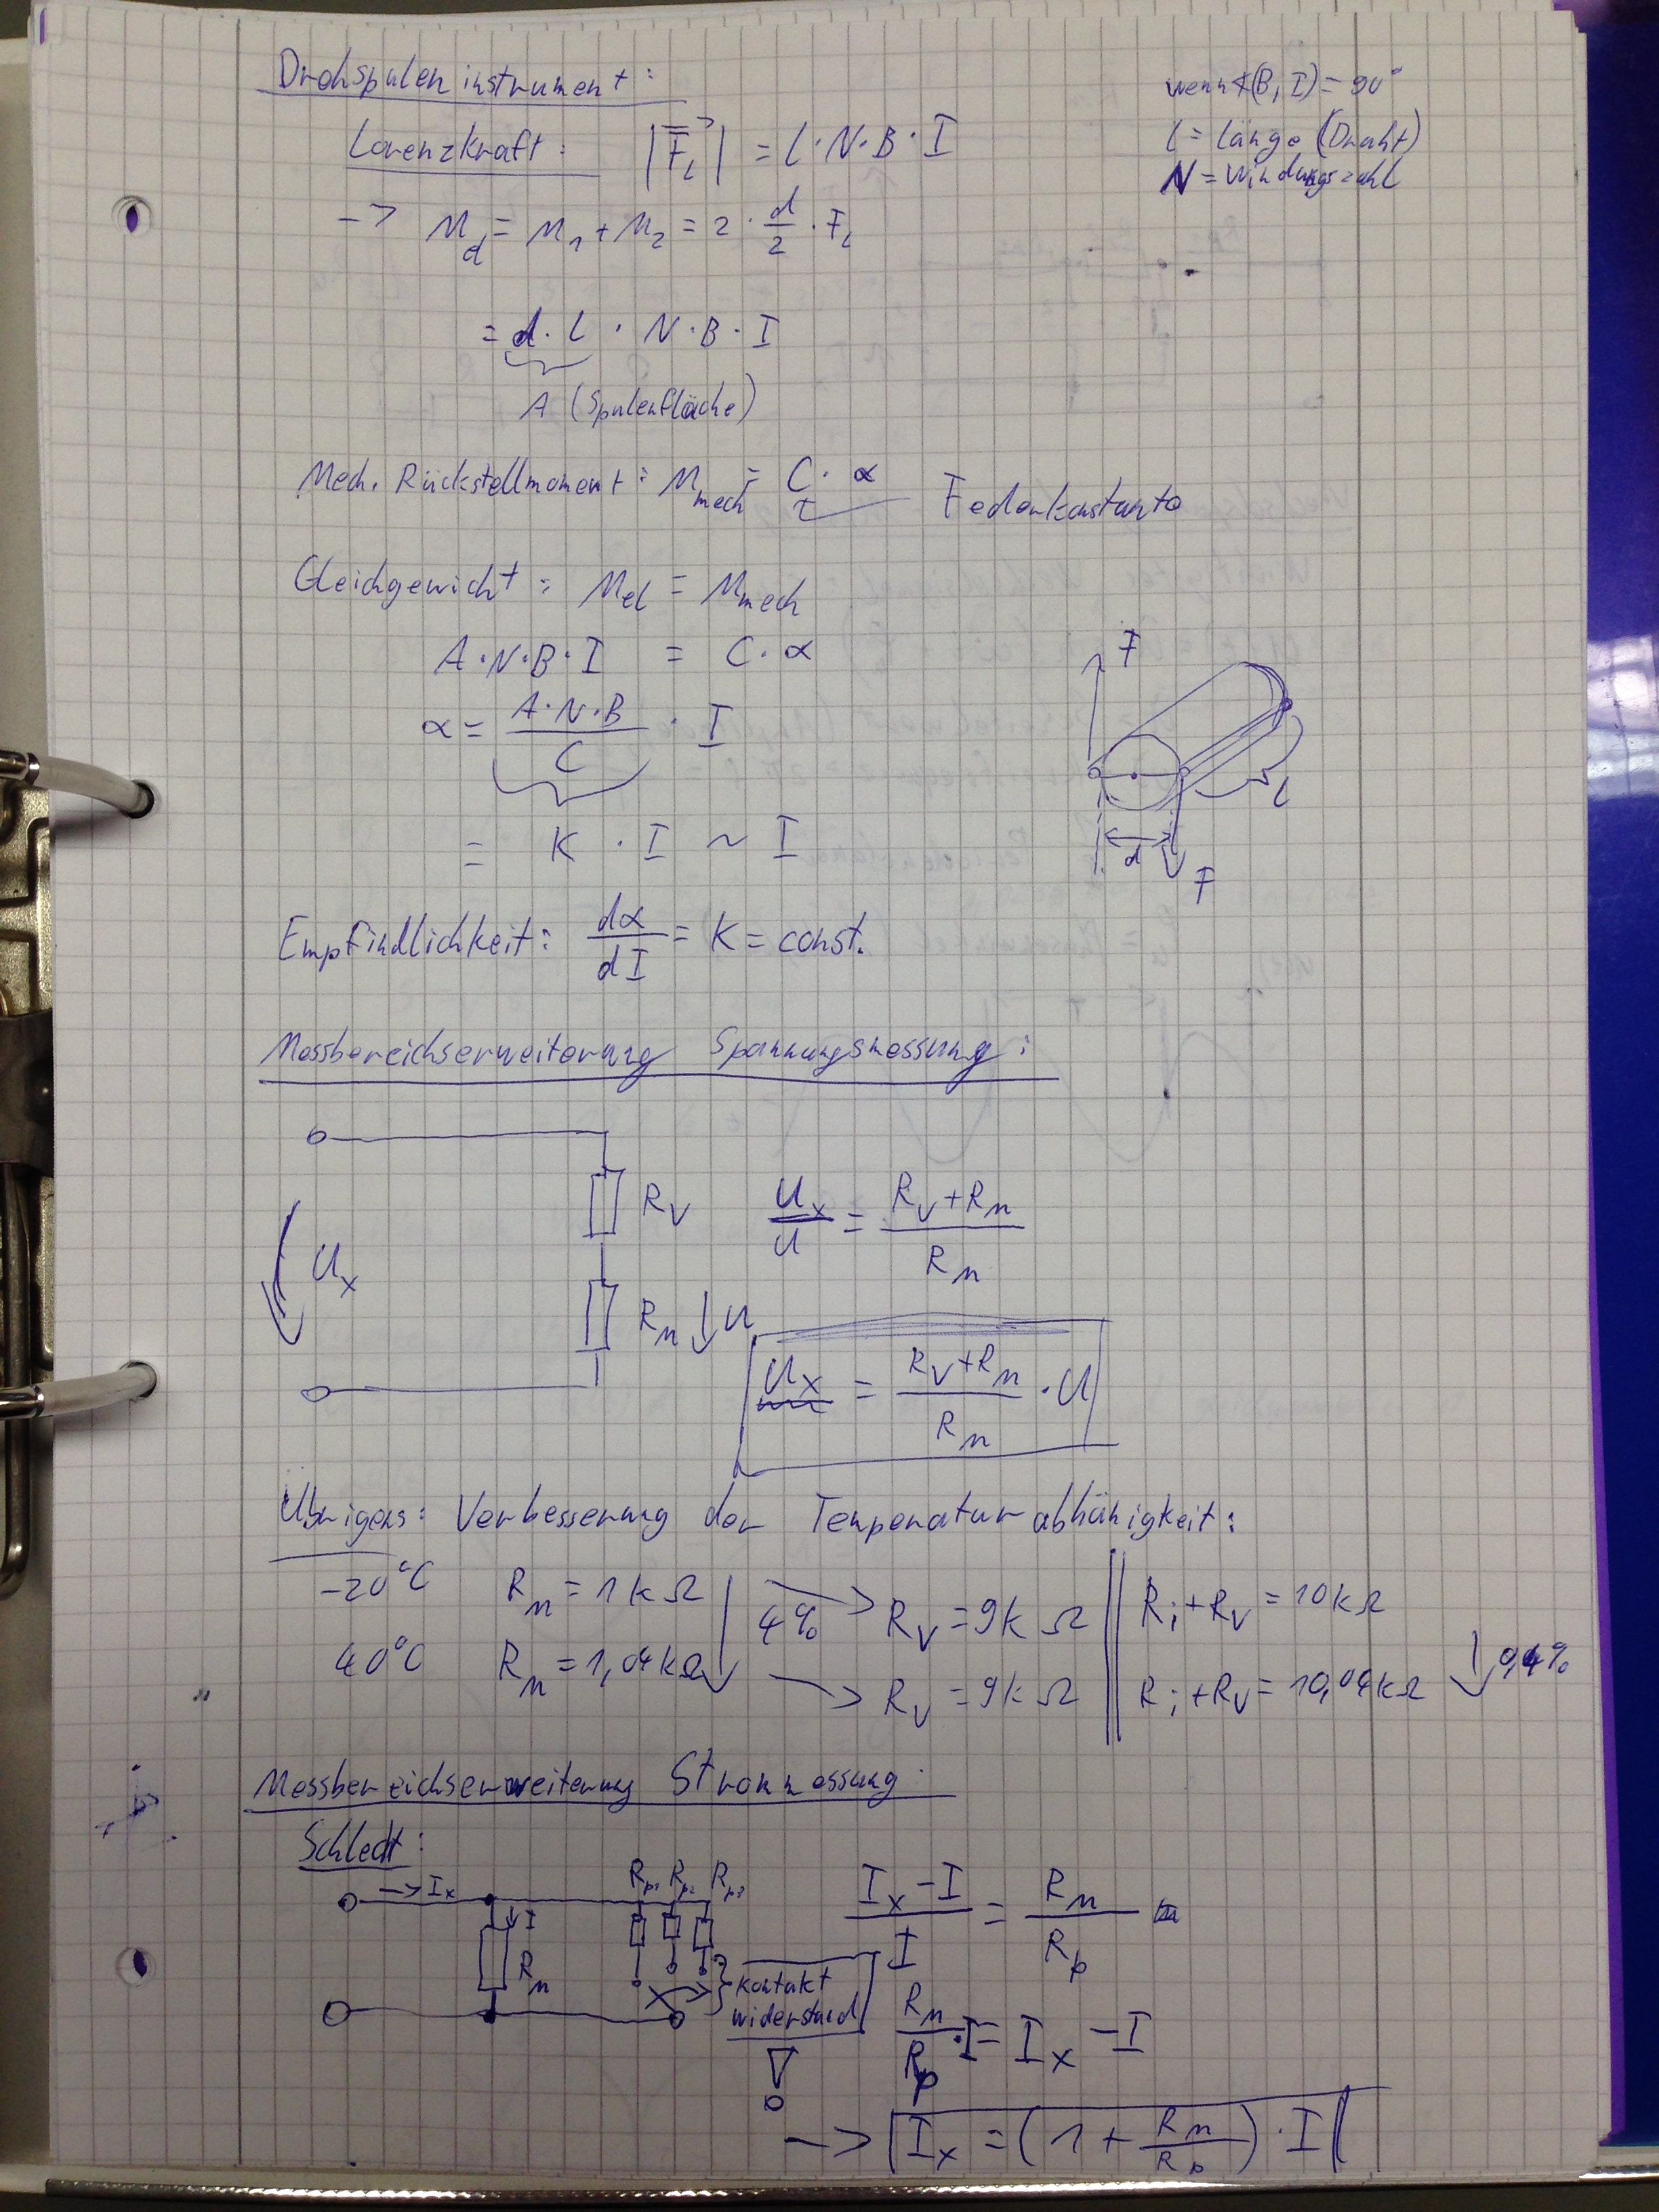 Drehspuleninstrument:
wenn ∢(B, I) = 90°
Lorenzkraft: |F_L| = l·N·B·I
l = Länge (Draht)
N = Windungszahl
-> M_d = M_1 + M_2 = 2 · d/2 · F_L
= d · l · N · B · I
A (Spulenfläche)
Mech. Rückstellmoment: M_mech = C · α Federkonstante
Gleichgewicht: M_el = M_mech
A·N·B·I = C·α
α = A·N·B / C · I
= K · I ~ I
F
l
d
F
Empfindlichkeit: dα/dI = K = const.
Messbereichserweiterung Spannungsmessung:
R_V U_x/U = (R_V + R_M) / R_M
U_x
R_M ↓ U
U_x = (R_V + R_M) / R_M · U
Übrigens: Verbesserung der Temperaturabhänigkeit:
-20°C R_M = 1kΩ 4% -> R_V = 9kΩ || R_i + R_V = 10kΩ
40°C R_M = 1,04kΩ -> R_V = 9kΩ || R_i + R_V = 10,04kΩ ↓ 0,4%
Messbereichserweiterung Strommessung:
Schlecht:
-> I_x R_p1 R_p2 R_p3 (I_x - I) / I = R_M / R_p
↓ I
R_M
Kontakt
widerstand
R_M / R_p · I = I_x - I
-> I_x = (1 + R_M / R_p) · I